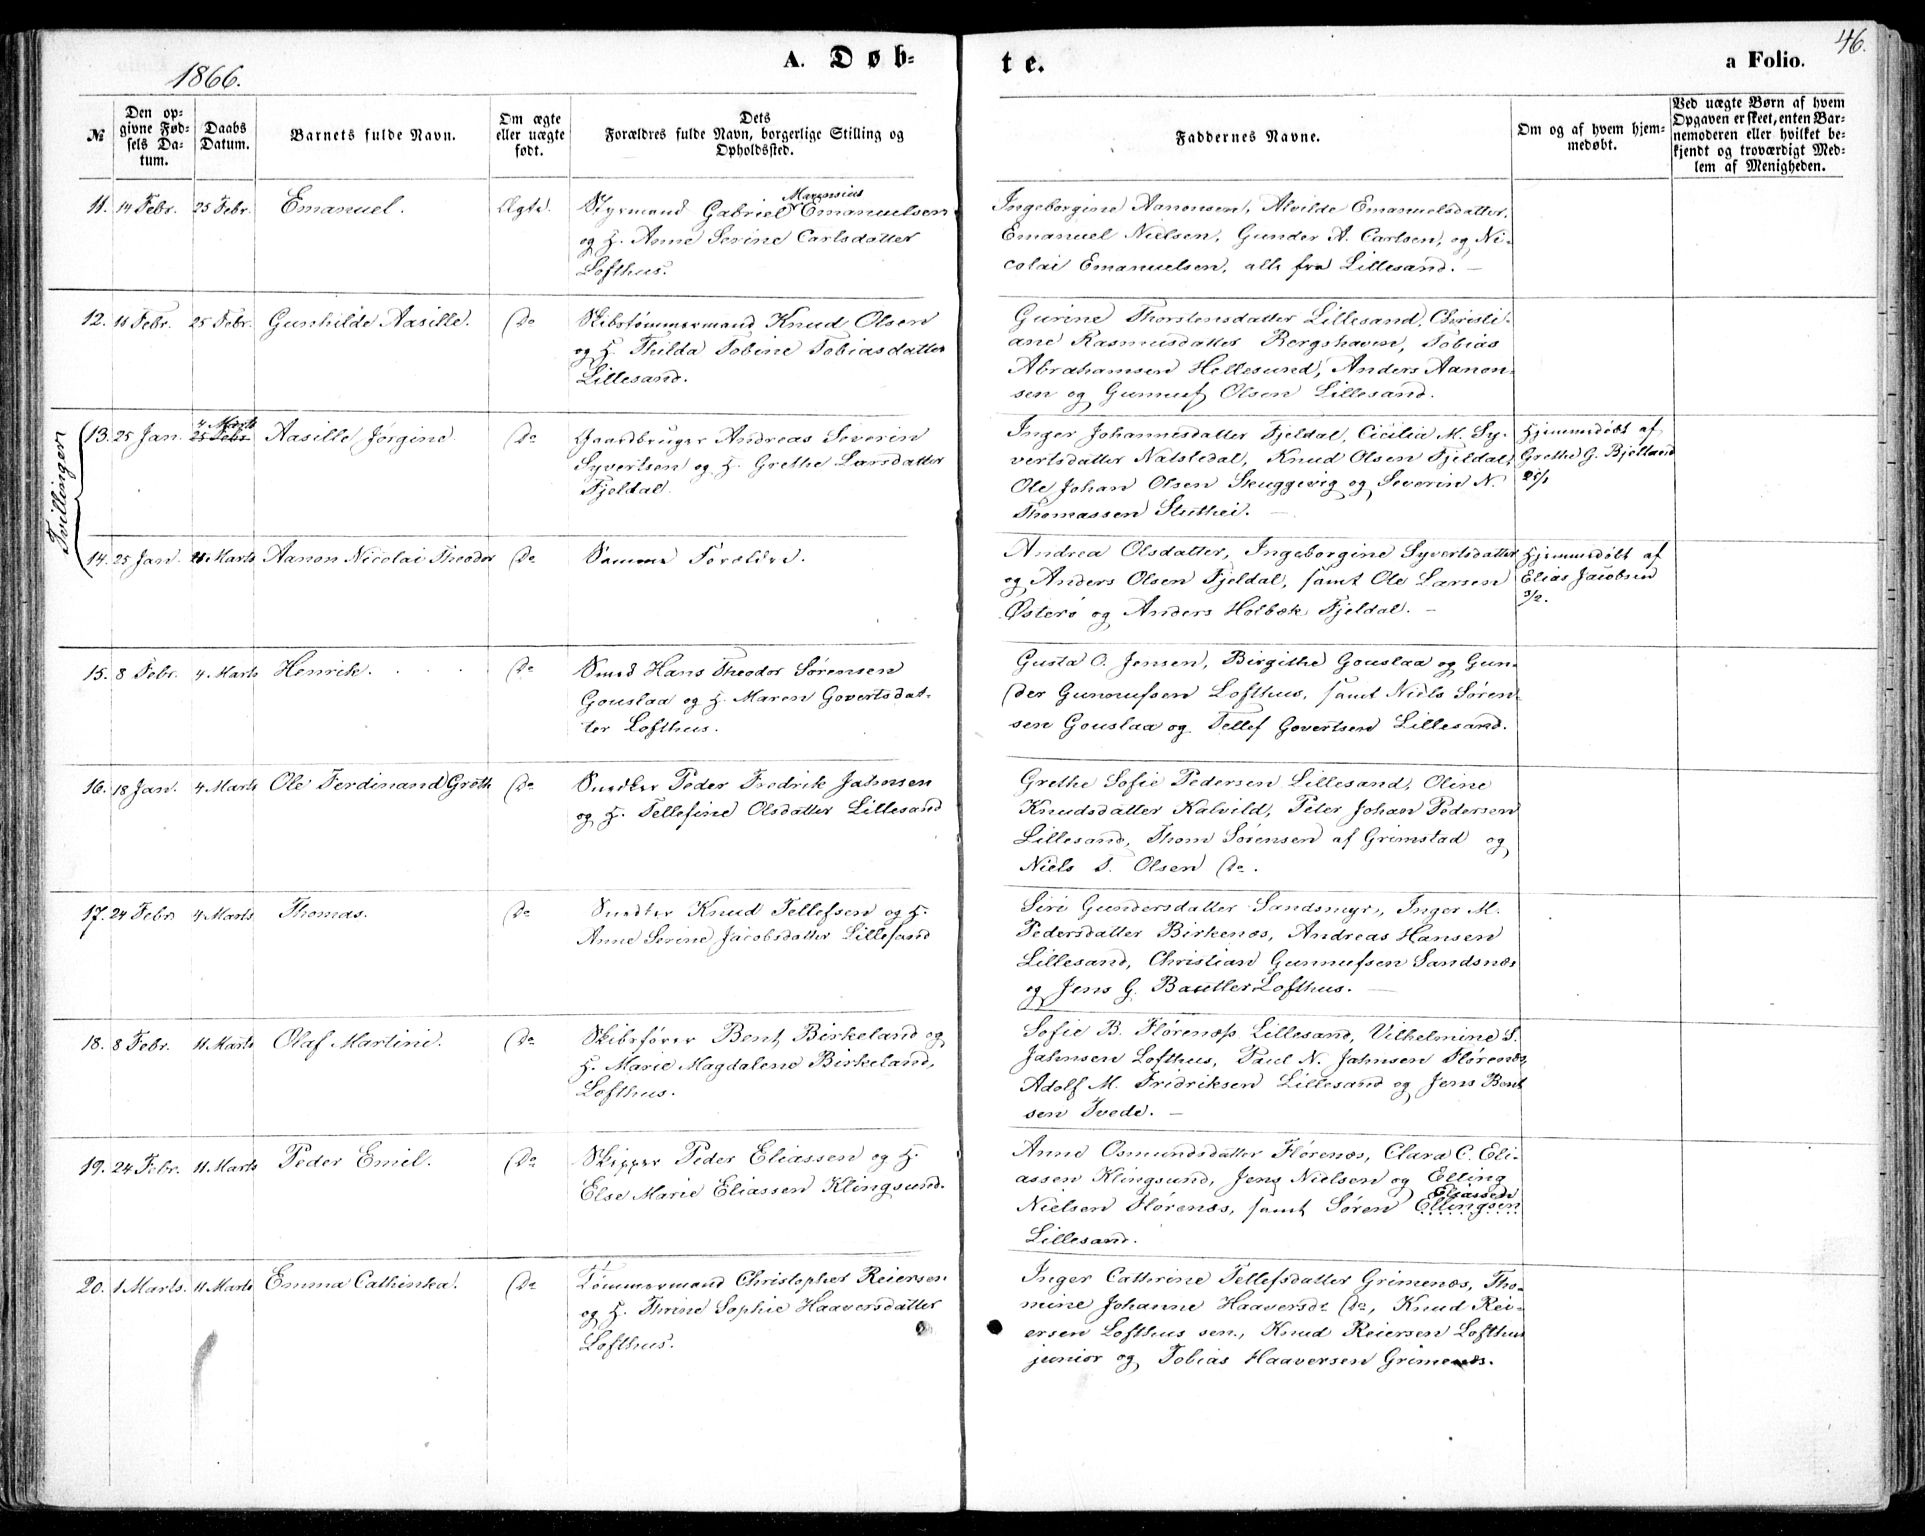 1866.
A. Døb-
te.
a Folio.
46.
№
Den op-
givne Fød-
sels Da-
tum.
Daabs
Datum.
Barnets fulde Navn.
Om ægte
eller uægte
født.
Dets
Forældres fulde Navn, borgerlige Stilling og
Opholdssted.
Faddernes Navne.
Om og af hvem hjem-
medøbt.
Ved uægte Børn af hvem
Opgaven er skeet, enten Bar-
nemoderen eller hvilket be-
kjendt og troværdigt Med-
lem af Menigheden.
11. 14 Febr. 25 Febr. Emanuel. Ægte.
Marensius
Styrmand Gabriel Emanuelsen
og H. Anne Serine Carlsdatter
Lofthus.
Ingeborgine Aanonsen, Alvilde Emanuelsdatter,
Emanuel Nielsen, Gunder A. Carlsen, og Ni-
colai Emanuelsen, alle fra Lillesand. —
12. 11 Febr. 25 Febr. Gunhilde Aasille. Do
Skibstømmermand Knud Olsen
og H. Thilda Tobine Tobiasdatter
Lillesand.
Gurine Thorstensdatter Lillesand, Christi-
ane Rasmusdatter Bergshaven, Tobias
Abrahamsen Hellesund, Anders Aanon-
sen og Gunnuf Olsen Lillesand.
Tvillinger
4 Marts
13. 25 Jan. 25 Febr Aasille Jørgine. Do
Gaardbruger Andreas Severin
Syvertsen og H. Grethe Larsdatter
Fjeldal.
Inger Johannesdatter Fjeldal, Cicilia M. Sy-
vertsdatter Natstedal, Knud Olsen Fjeldal,
Ole Johan Olsen Skuggevig og Severin N.
Thomassen Sluthei. —
Hjemmedøbt af
Grethe G. Bjelland
25/1
14. 25 Jan. 11 Marts Aanon Nicolai Theodor Do
Samme Forældre.
Andrea Olsdatter, Ingeborgine Syvertsdatter
og Anders Olsen Fjeldal, samt Ole Larsen
Østerø og Anders Holbæk Fjeldal. —
Hjemmedøbt af
Elias Jacobsen
3/2.
15. 8 Febr. 4 Marts Henrik. Do
Smed Hans Theodor Sørensen
Gouslaa og H. Maren Govertsdat-
ter Lofthus.
Gusta O. Jensen, Birgithe Gouslaa og Gun-
der Gunnufsen Lofthus, samt Niels Søren-
sen Gouslaa og Tellef Govertsen Lillesand.
16. 18 Jan. 4 Marts Ole Ferdinand Grøth Do
Snedker Peder Fredrik Jahnsen
og H. Tellefine Olsdatter Lillesand
Grethe Sofie Pedersen Lillesand, Oline
Knudsdatter Kalvild, Peter Johan Pedersen
Lillesand, Thom Sørensen af Grimstad og
Niels T. Olsen Do.
17. 24 Febr. 4 Marts Thomas. Do
Snedker Knud Tellefsen og H.
Anne Serine Jacobsdatter Lillesand
Siri Gundersdatter Sandsmyr, Inger M.
Pedersdatter Birkenæs, Andreas Hansen
Lillesand, Christian Gunnufsen Sandsnæs
og Jens G. Bautler Lofthus. —
18. 8 Febr. 11 Marts Olaf Martini. Do
Skibsfører Bent Birkeland og
H. Marie Magdalene Birkeland,
Lofthus.
Sofie B. Flørenæss Lillesand, Vilhelmine S.
Jahnsen Lofthus, Paul N. Jahnsen Flørenæs,
Adolf M. Fridriksen Lillesand og Jens Bent-
sen Tvede. —
19. 24 Febr. 11 Marts Peder Emil. Do
Skipper Peder Eliassen og H.
Else Marie Eliassen Klingsund.
Anne Osmundsdatter Flørenæs, Clara C. Eli-
assen Klingsund, Jens Nielsen og Elling
Eliassen
Nielsen Flørenæs, samt Søren Ellingsen
Lillesand.
20. 1 Marts. 11 Marts Emma Cathinka. Do
Tømmermand Christopher Reiersen
og H. Thrine Sophie Haaversdatter
Lofthus.
Inger Cathrine Tellefsdatter Grimenæs, Tho-
mine Johanne Haaversdr Do, Knud Rei-
ersen Lofthus sen., Knud Reiersen Lofthus
junior og Tobias Haaversen Grimenæs.